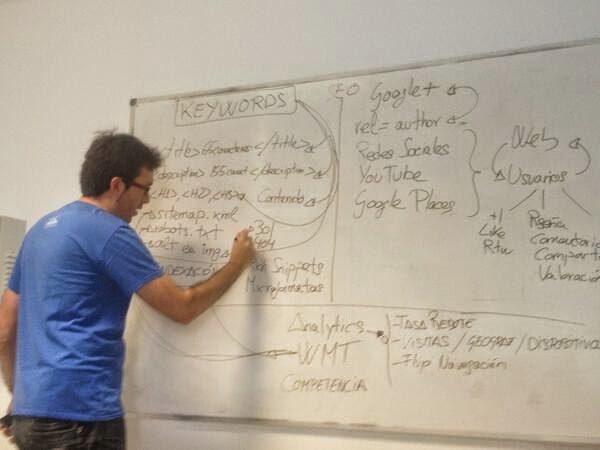 KEYWORDS
<title> 65 caracteres </title>
description> 155 caract </description>
<H1>, <H2>, <H3> Contenido
sitemap.xml
robots.txt 301
alt en img 404
INDEXACIÓN Rich Snippets
Microformatos
Google+
rel=author
Redes Sociales
YouTube
Google Places
Web
Usuarios
+1
Like
Rtw
Reseña
Comentario
Compartir
Valoración
Analytics
WMT
COMPETENCIA
-TASA REBOTE
-VISITAS / GEOGRAF / DISPOSITIVOS
-Flujo Navegación